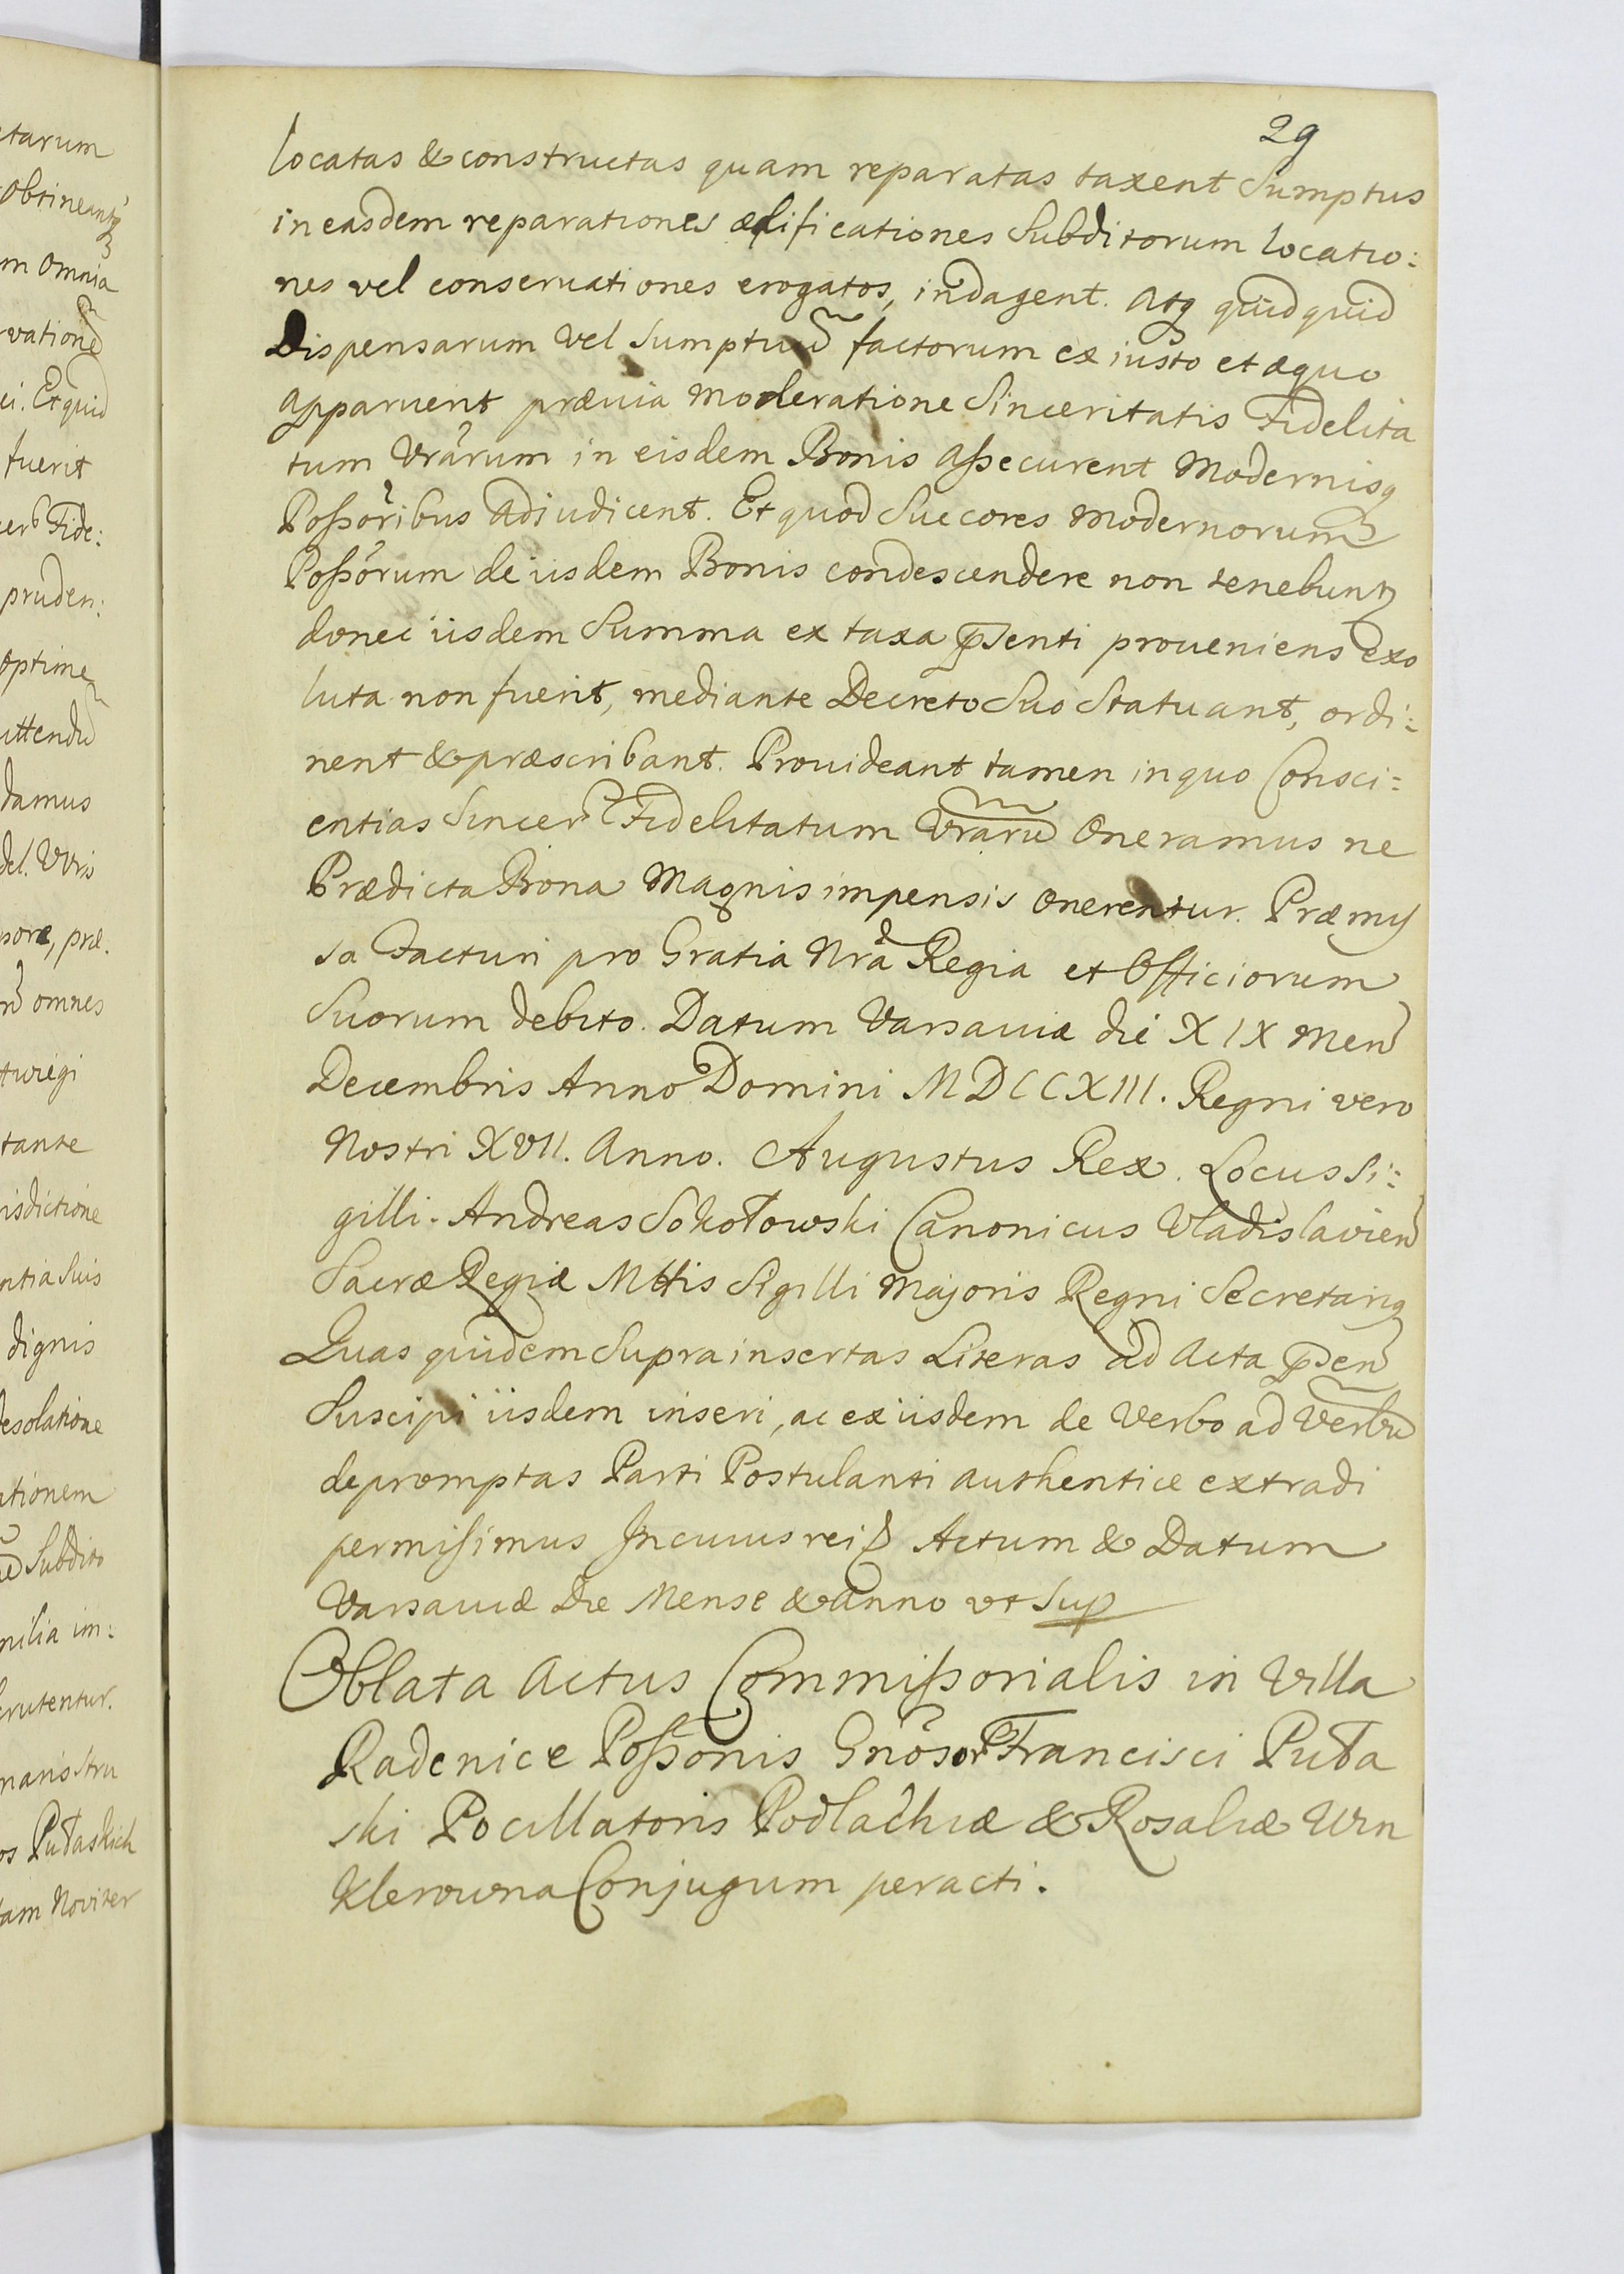 29
locatas & constructas quam reparatas taxent Sumptus
in easdem reparationes ædificationes Subditorum locatio:
nes vel conservationes erogatos, indagent. Atq quidquid
Dispensarum vel Sumptuũ factorum ex iusto et æquo
apparuerit prævia Moderatione Sinceritatis Fidelita
tum Vrãrum in eisdem Bonis aßecurent Modernisq
Poßõribus adiudicent. Et quod Succores Modernorum
Poßõrum de iisdem Bonis condescendere non tenebunt
donec iisdem Summa ex taxa pñsenti proveniens exo
luta non fuerit, mediante Decreto Suo Statuant, ordi:
nent & præscribant. Provideant tamen in quo Consci:
entias Sincer Fidelitatum Vrarũ Oneramus ne
Prædicta Bona Magnis impensis onerentur. Præmis
sa Facturi pro Gratia Nrã Regia et Officiorum
Suorum debito. Datum Varsaviæ die XIX Men
Decembris Anno Domini MDCCXIII. Regni vero
Nostri XVII. Anno. Augustus Rex. Locus Si:
gilli. Andreas Sokołowski Canonicus Vladislavien
Sacræ Regiæ Mttis Sigilli Majoris Regni Secretarig
Quas quidem Suprainsertas Literas ad Acta pñsen
Suscipi iisdem inseri, ac ex iisdem de Verbo ad Verbũ
depromptas Parti Postulanti authentice extradi
permisimus In cuius rei Actum & Datum
Varsaviæ Die Mense & Anno vt Sup
Oblata Actus Commißorialis in Villa
Radenice Poßonis Gnõsor Francisci Puła
ski Pocillatoris Podlachiæ & Rosaliæ Win
klerowna Conjugum peracti.